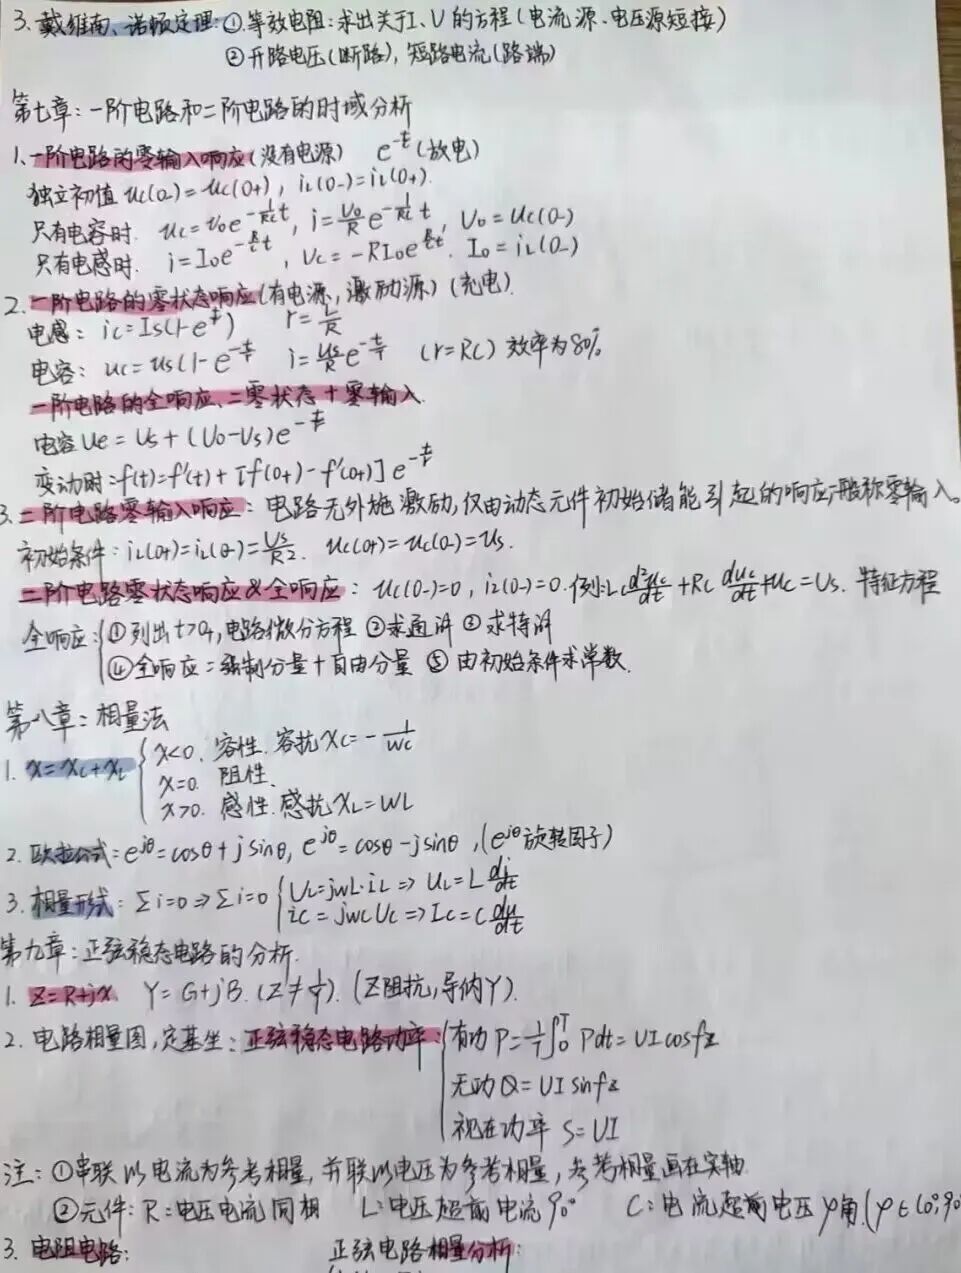 3. 戴维南、诺顿定理: ①.等效电阻: 求出关于I、U的方程(电流源、电压源短接)
②开路电压(断路), 短路电流(路端)
第七章: 一阶电路和二阶电路的时域分析
1. 一阶电路的零输入响应(没有电源) e^{-t/τ}(放电)
独立初值 uc(0-)=uc(0+), iL(0-)=iL(0+).
只有电容时. uc=U0e^{-\frac{1}{RC}t}, i=\frac{U0}{R}e^{-\frac{1}{RC}t}, U0=Uc(0-)
只有电感时. i=I0e^{-\frac{R}{L}t}, Vc=-RI0e^{\frac{R}{L}t}. I0=iL(0-)
2. 一阶电路的零状态响应(有电源, 激励源) (充电).
电感: ic=Is(1-e^{\frac{t}{τ}}) r=\frac{L}{R}
电容: uc=us(1-e^{-\frac{t}{τ}} i=\frac{Us}{R}e^{-\frac{t}{τ}} (r=RC) 效率为80%
一阶电路的全响应、二零状态+零输入.
电容Uc=Us+(U0-Us)e^{-\frac{t}{τ}}
变动时:f(t)=f'(t)+[f(0+)-f'(0+)]e^{-\frac{t}{τ}}
3. 二阶电路零输入响应: 电路无外施激励,仅由动态元件初始储能引起的响应一般称零输入。
初始条件: iL(0+)=iL(0-)=\frac{Us}{R2}. uc(0+)=uc(0-)=Us.
二阶电路零状态响应&全响应: uc(0-)=0, iL(0-)=0. 例:LC\frac{d²uc}{dt}+RC\frac{duc}{dt}+uc=Us. 特征方程
全响应: ①列出t>0+,电路微分方程 ②求通解 ③求特解
④全响应=强制分量+自由分量 ⑤由初始条件求常数.
第八章: 相量法
1. x=xc+xL x<0. 容性. 容抗Xc=-\frac{1}{wc}
x=0. 阻性.
x>0. 感性. 感抗XL=WL
2. 欧拉公式=e^{jθ}=cosθ+jsinθ, e^{jθ}=cosθ-jsinθ, (e^{jθ}旋转因子)
3. 相量形式: Σi=0⇒Σi=0 UL=jwL·iL ⇒ UL=L\frac{di}{dt}
ic=jwcUc⇒Ic=C\frac{du}{dt}
第九章: 正弦稳态电路的分析.
1. Z=R+jx. Y=G+jB. (Z≠\frac{1}{Y}). (Z阻抗,导纳Y).
2. 电路相量图, 定基坐: 正弦稳态电路功率: 有功P=\frac{1}{T}∫_0^T Pdt=UIcosfz
无功Q=UIsinfz
视在功率 S=UI
注: ①串联以电流为参考相量, 并联以电压为参考相量, 参考相量画在实轴
②元件: R: 电压电流同相 L: 电压超前电流90° C: 电流超前电压φ角(φ∈(0°,90
3. 电阻电路: 正弦电路相量分析: